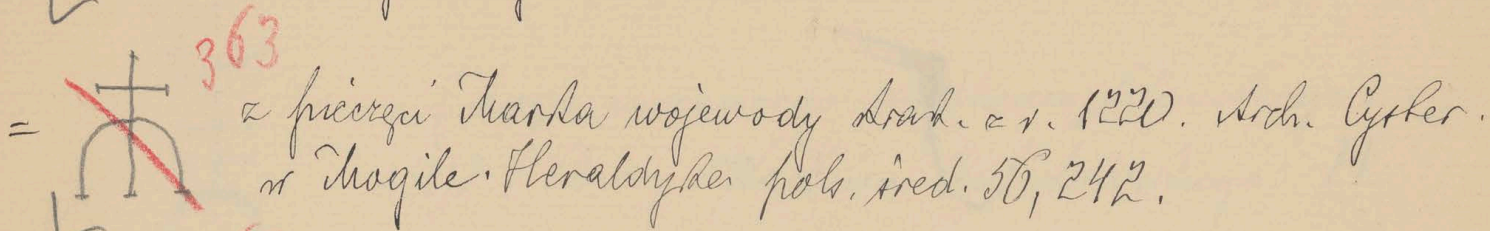 363
= z pieczęci Marka wojewody krak. z r. 1220. Arch. Cyster.
w Mogile. Heraldyka pols. śred. 56, 242.